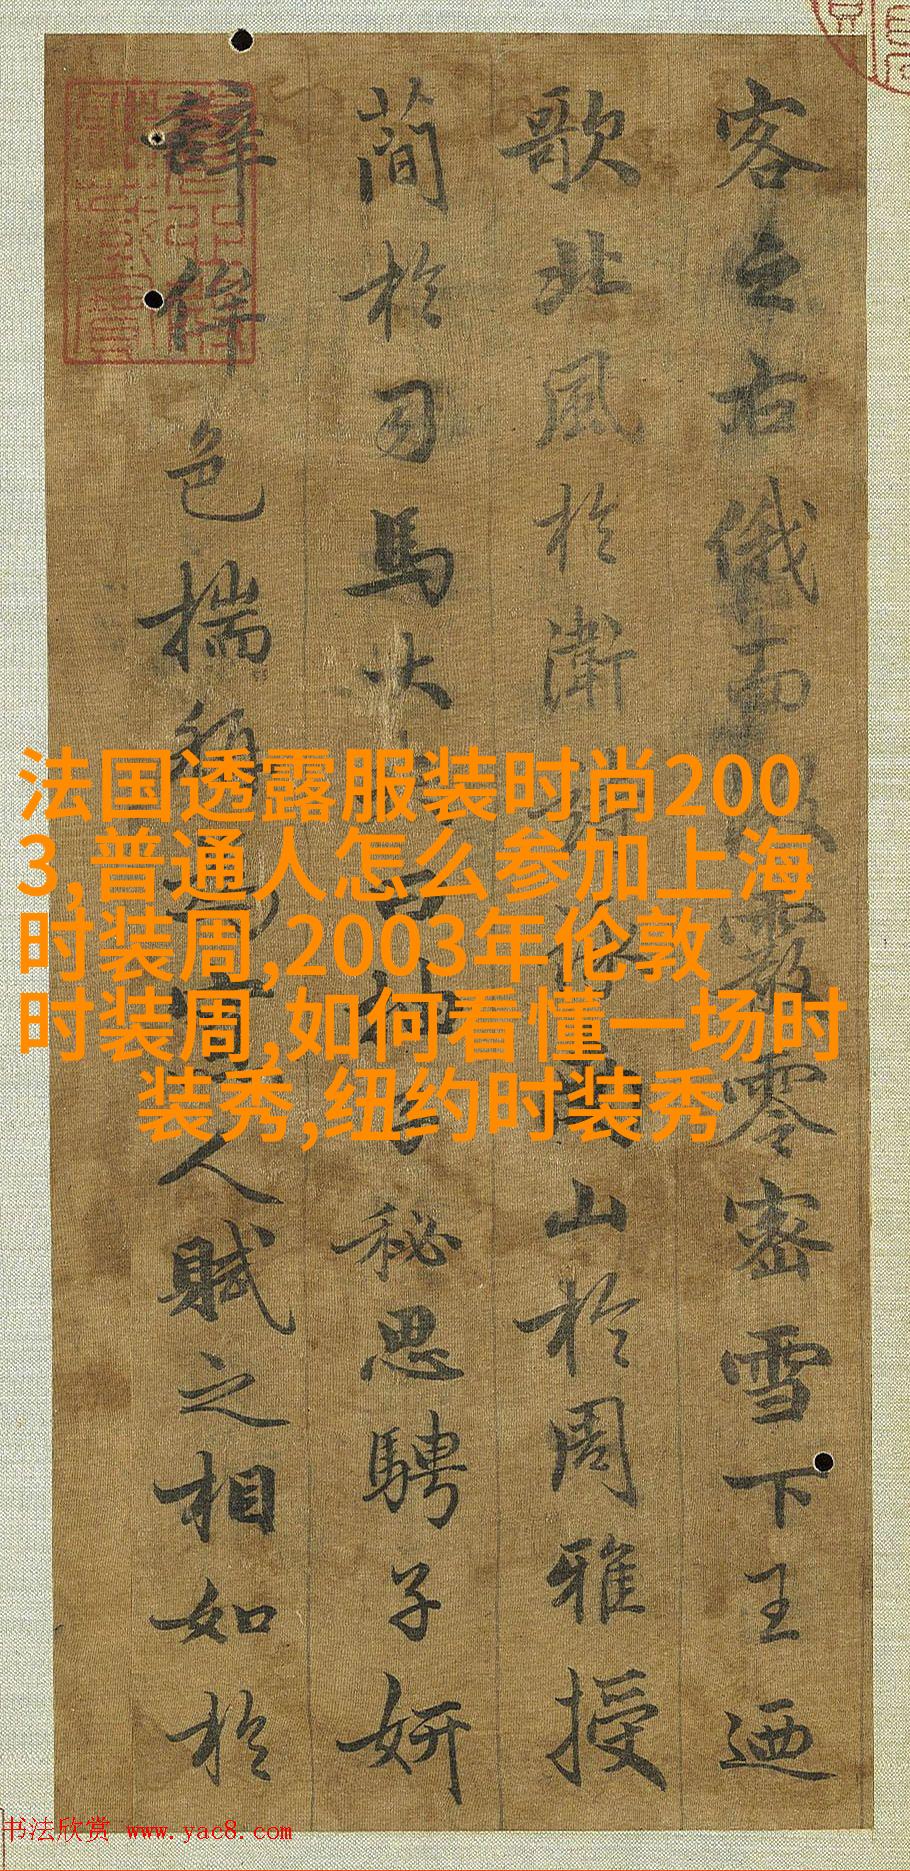 客之右俄而霰零密雪下王迺
歌北風於衛山於周雅授
簡於司馬大曰抽秘思騁子妍
辭侔色揣稱人賦之相如於
法国透露服装时尚200
3,普通人怎么参加上海
时装周,2003年伦敦
时装周,如何看懂一场时
装秀,纽约时装秀
书法欣赏 www.yac8.com